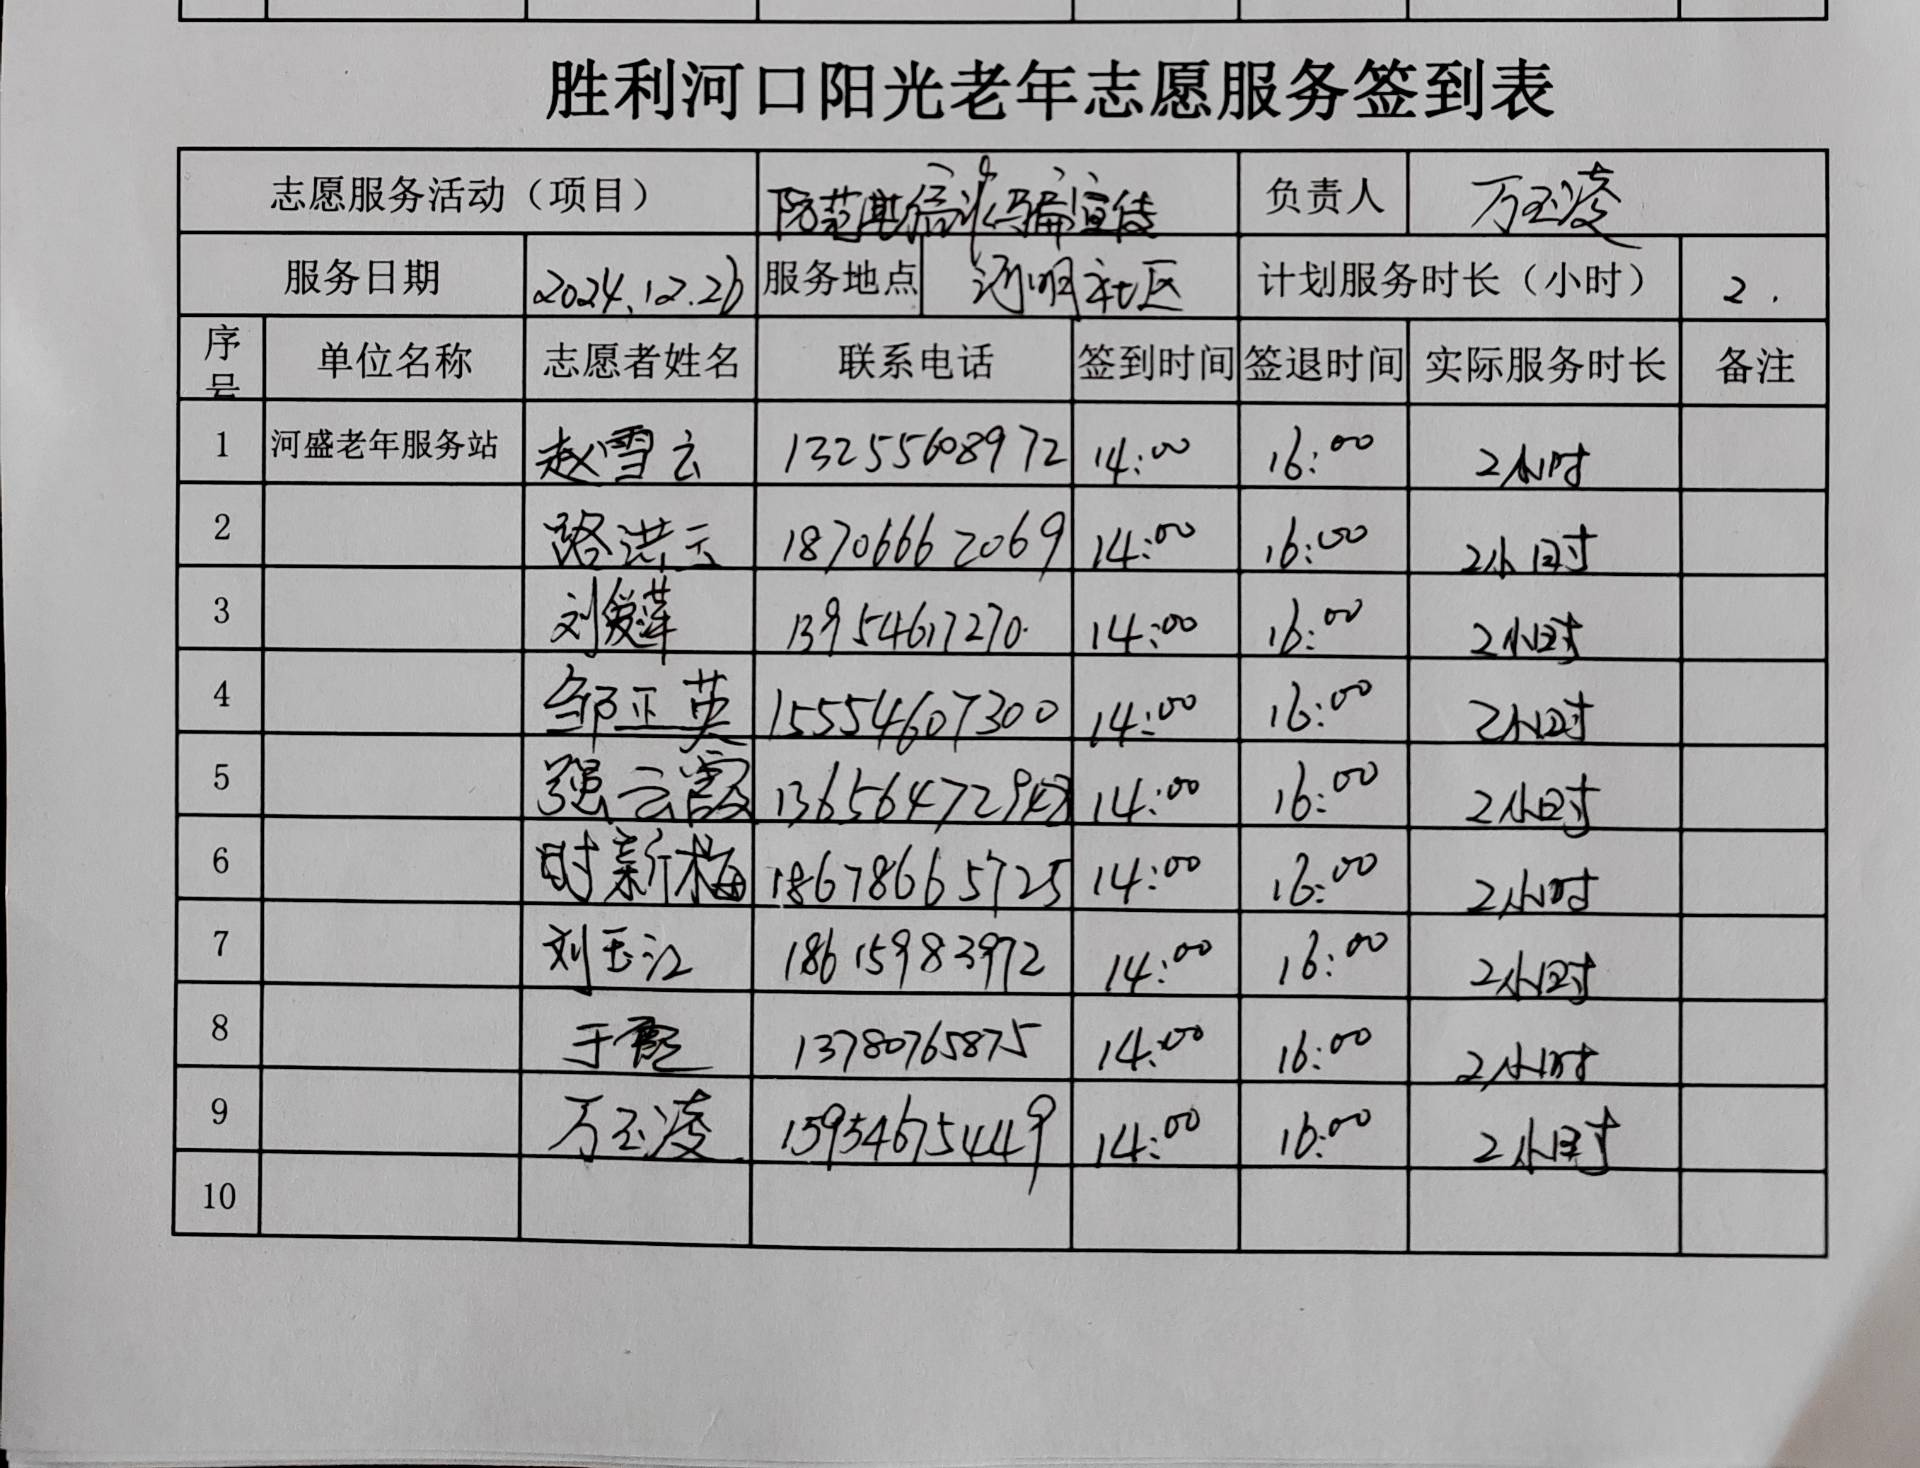 胜利河口阳光老年志愿服务签到表
志愿服务活动（项目） 防范电信诈骗宣传 负责人 万玉凌
服务日期 2024.12.26 服务地点 河明社区 计划服务时长（小时） 2.
序号 单位名称 志愿者姓名 联系电话 签到时间 签退时间 实际服务时长 备注
1 河盛老年服务站 赵雪云 13255608972 14:00 16:00 2小时
2 路洪云 18706662069 14:00 16:00 2小时
3 刘爱莲 13954617270 14:00 16:00 2小时
4 邹正英 15554607300 14:00 16:00 2小时
5 强云霞 14:00 16:00 2小时
6 时新梅 18678665725 14:00 16:00 2小时
7 刘玉江 18615983972 14:00 16:00 2小时
8 于 13780765875 14:00 16:00 2小时
9 万玉凌 15954675449 14:00 16:00 2小时
10